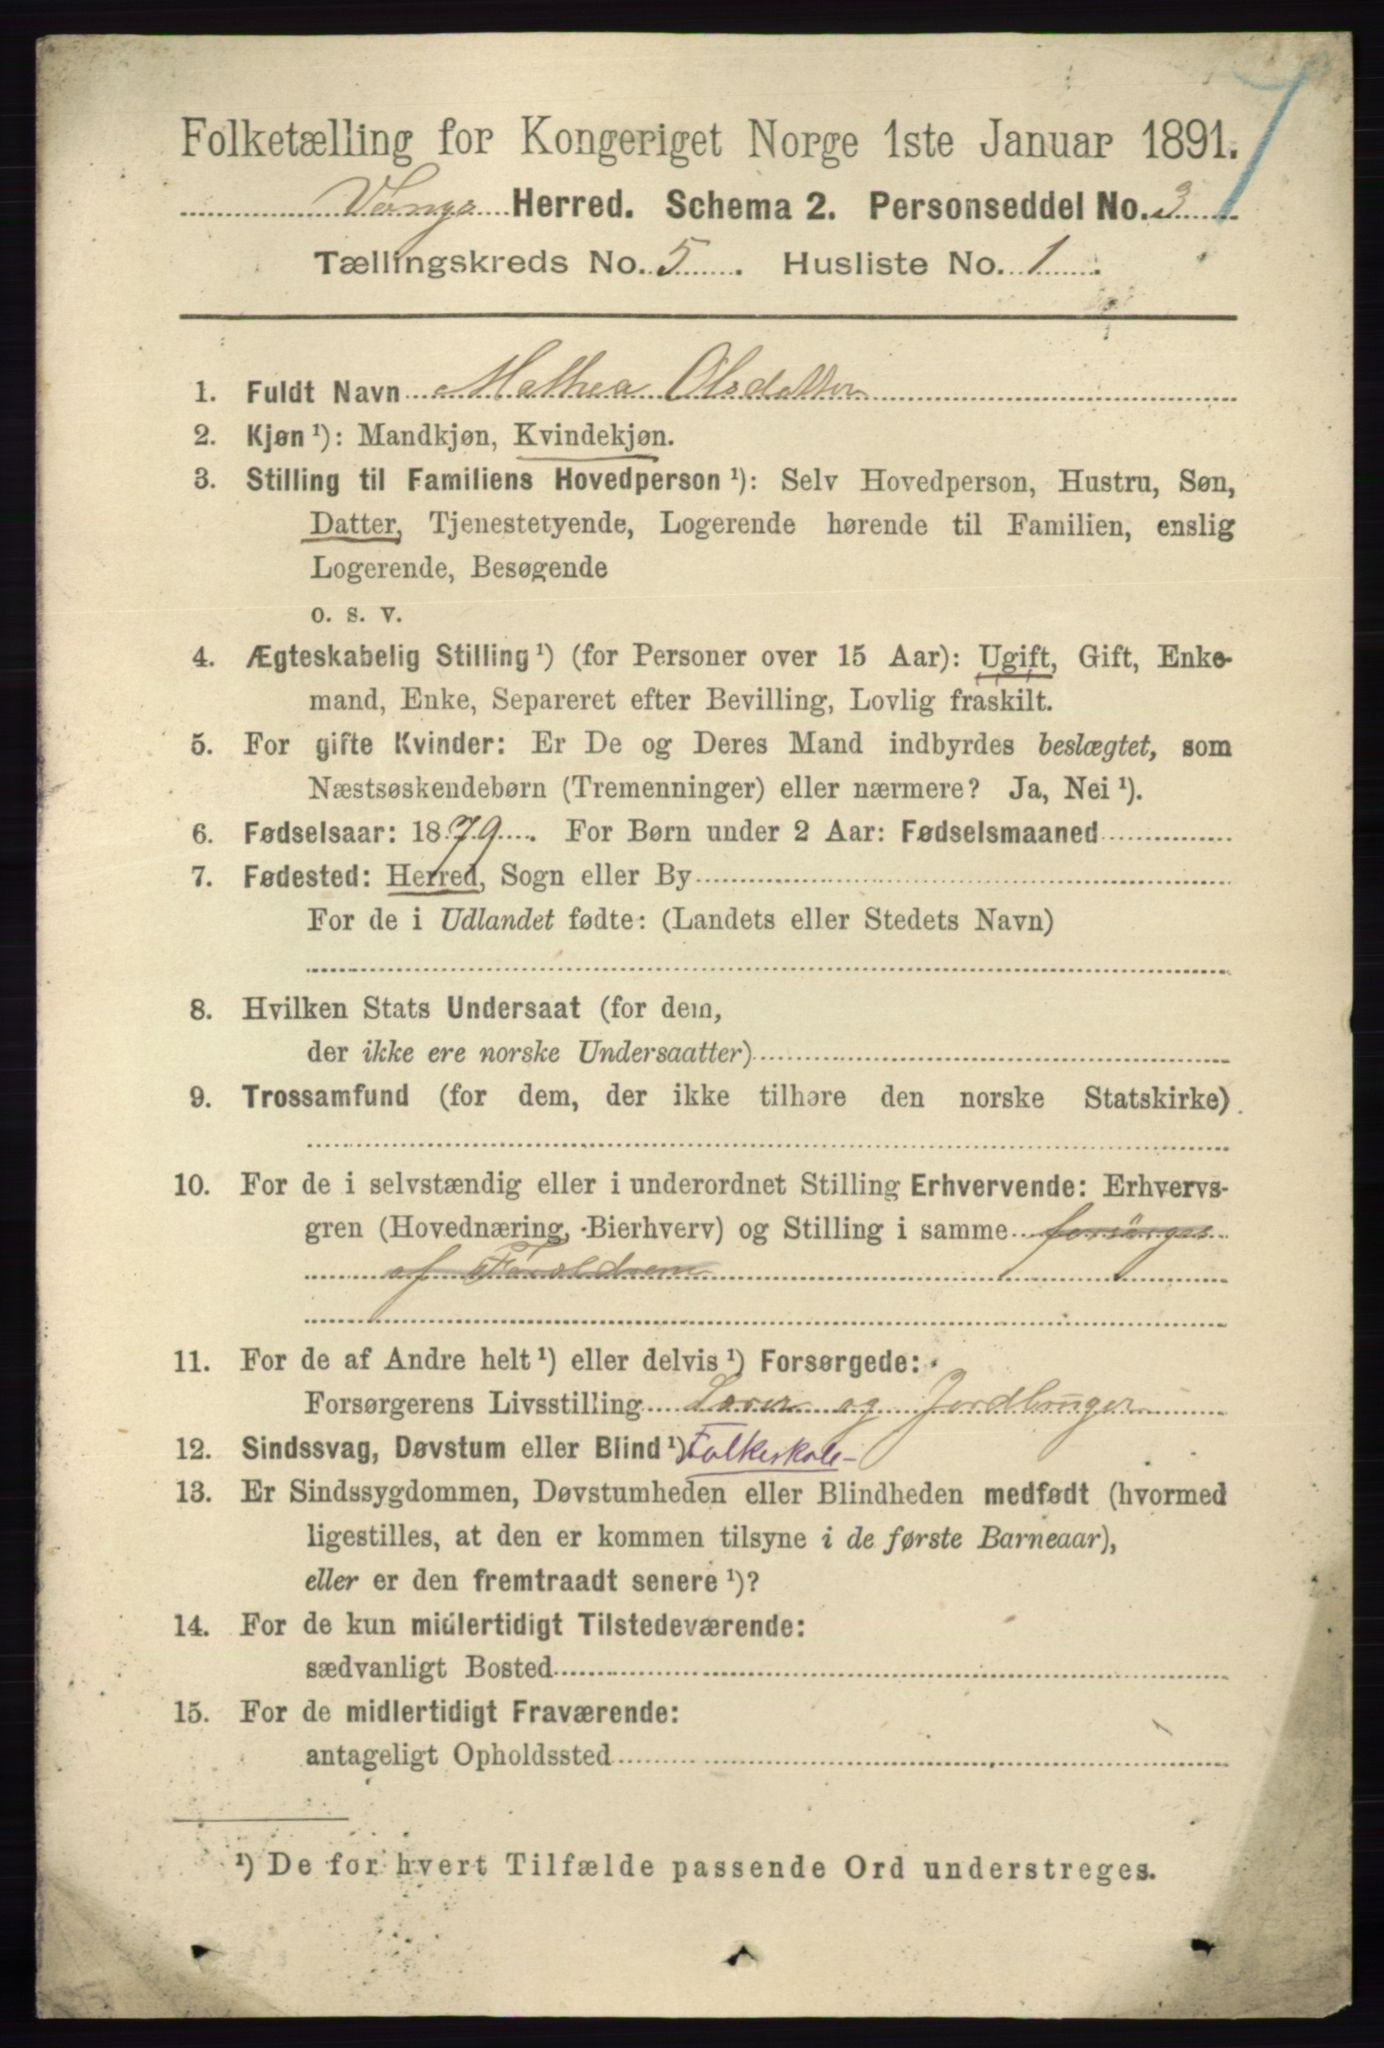 7
Folketælling for Kongeriget Norge 1ste Januar 1891.
Vangs Herred. Schema 2. Personseddel No. 3
Tællingskreds No. 5. Husliste No. 1.
1. Fuldt Navn Mathea Olsdatter
2. Kjøn ¹): Mandkjøn, Kvindekjøn.
3. Stilling til Familiens Hovedperson ¹): Selv Hovedperson, Hustru, Søn,
Datter, Tjenestetyende, Logerende hørende til Familien, enslig
Logerende, Besøgende
o. s. v.
4. Ægteskabelig Stilling ¹) (for Personer over 15 Aar): Ugift, Gift, Enke-
mand, Enke, Separeret efter Bevilling, Lovlig fraskilt.
5. For gifte Kvinder: Er De og Deres Mand indbyrdes beslægtet, som
Næstsøskendebørn (Tremenninger) eller nærmere? Ja, Nei ¹).
6. Fødselsaar: 1879. For Børn under 2 Aar: Fødselsmaaned
7. Fødested: Herred, Sogn eller By
For de i Udlandet fødte: (Landets eller Stedets Navn)
8. Hvilken Stats Undersaat (for dem,
der ikke ere norske Undersaatter)
9. Trossamfund (for dem, der ikke tilhøre den norske Statskirke)
10. For de i selvstændig eller i underordnet Stilling Erhvervende: Erhvervs-
gren (Hovednæring, Bierhverv) og Stilling i samme forsörges
af Forældrene
11. For de af Andre helt ¹) eller delvis ¹) Forsørgede:
Forsørgerens Livsstilling Lærer og Jordbruger
12. Sindssvag, Døvstum eller Blind ¹) Folkeskole-
13. Er Sindssygdommen, Døvstumheden eller Blindheden medfødt (hvormed
ligestilles, at den er kommen tilsyne i de første Barneaar),
eller er den fremtraadt senere ¹)?
14. For de kun midlertidigt Tilstedeværende:
sædvanligt Bosted
15. For de midlertidigt Fraværende:
antageligt Opholdssted
¹) De for hvert Tilfælde passende Ord understreges.